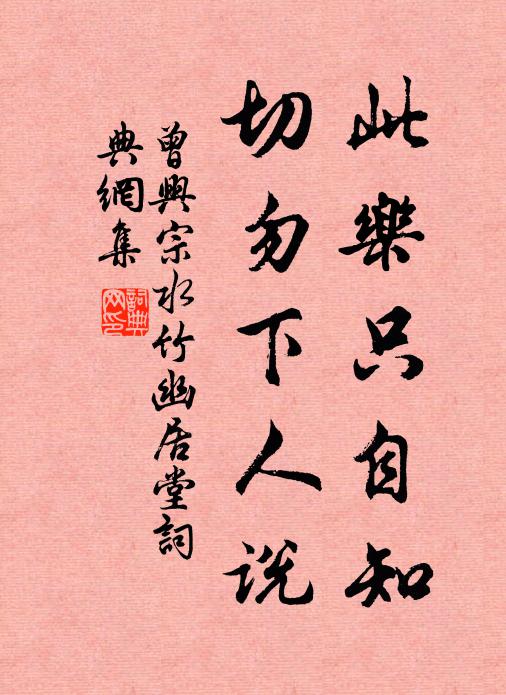 此樂只自知
切勿下人説
曾興宗水竹幽居堂詞
典網集
詞典網印